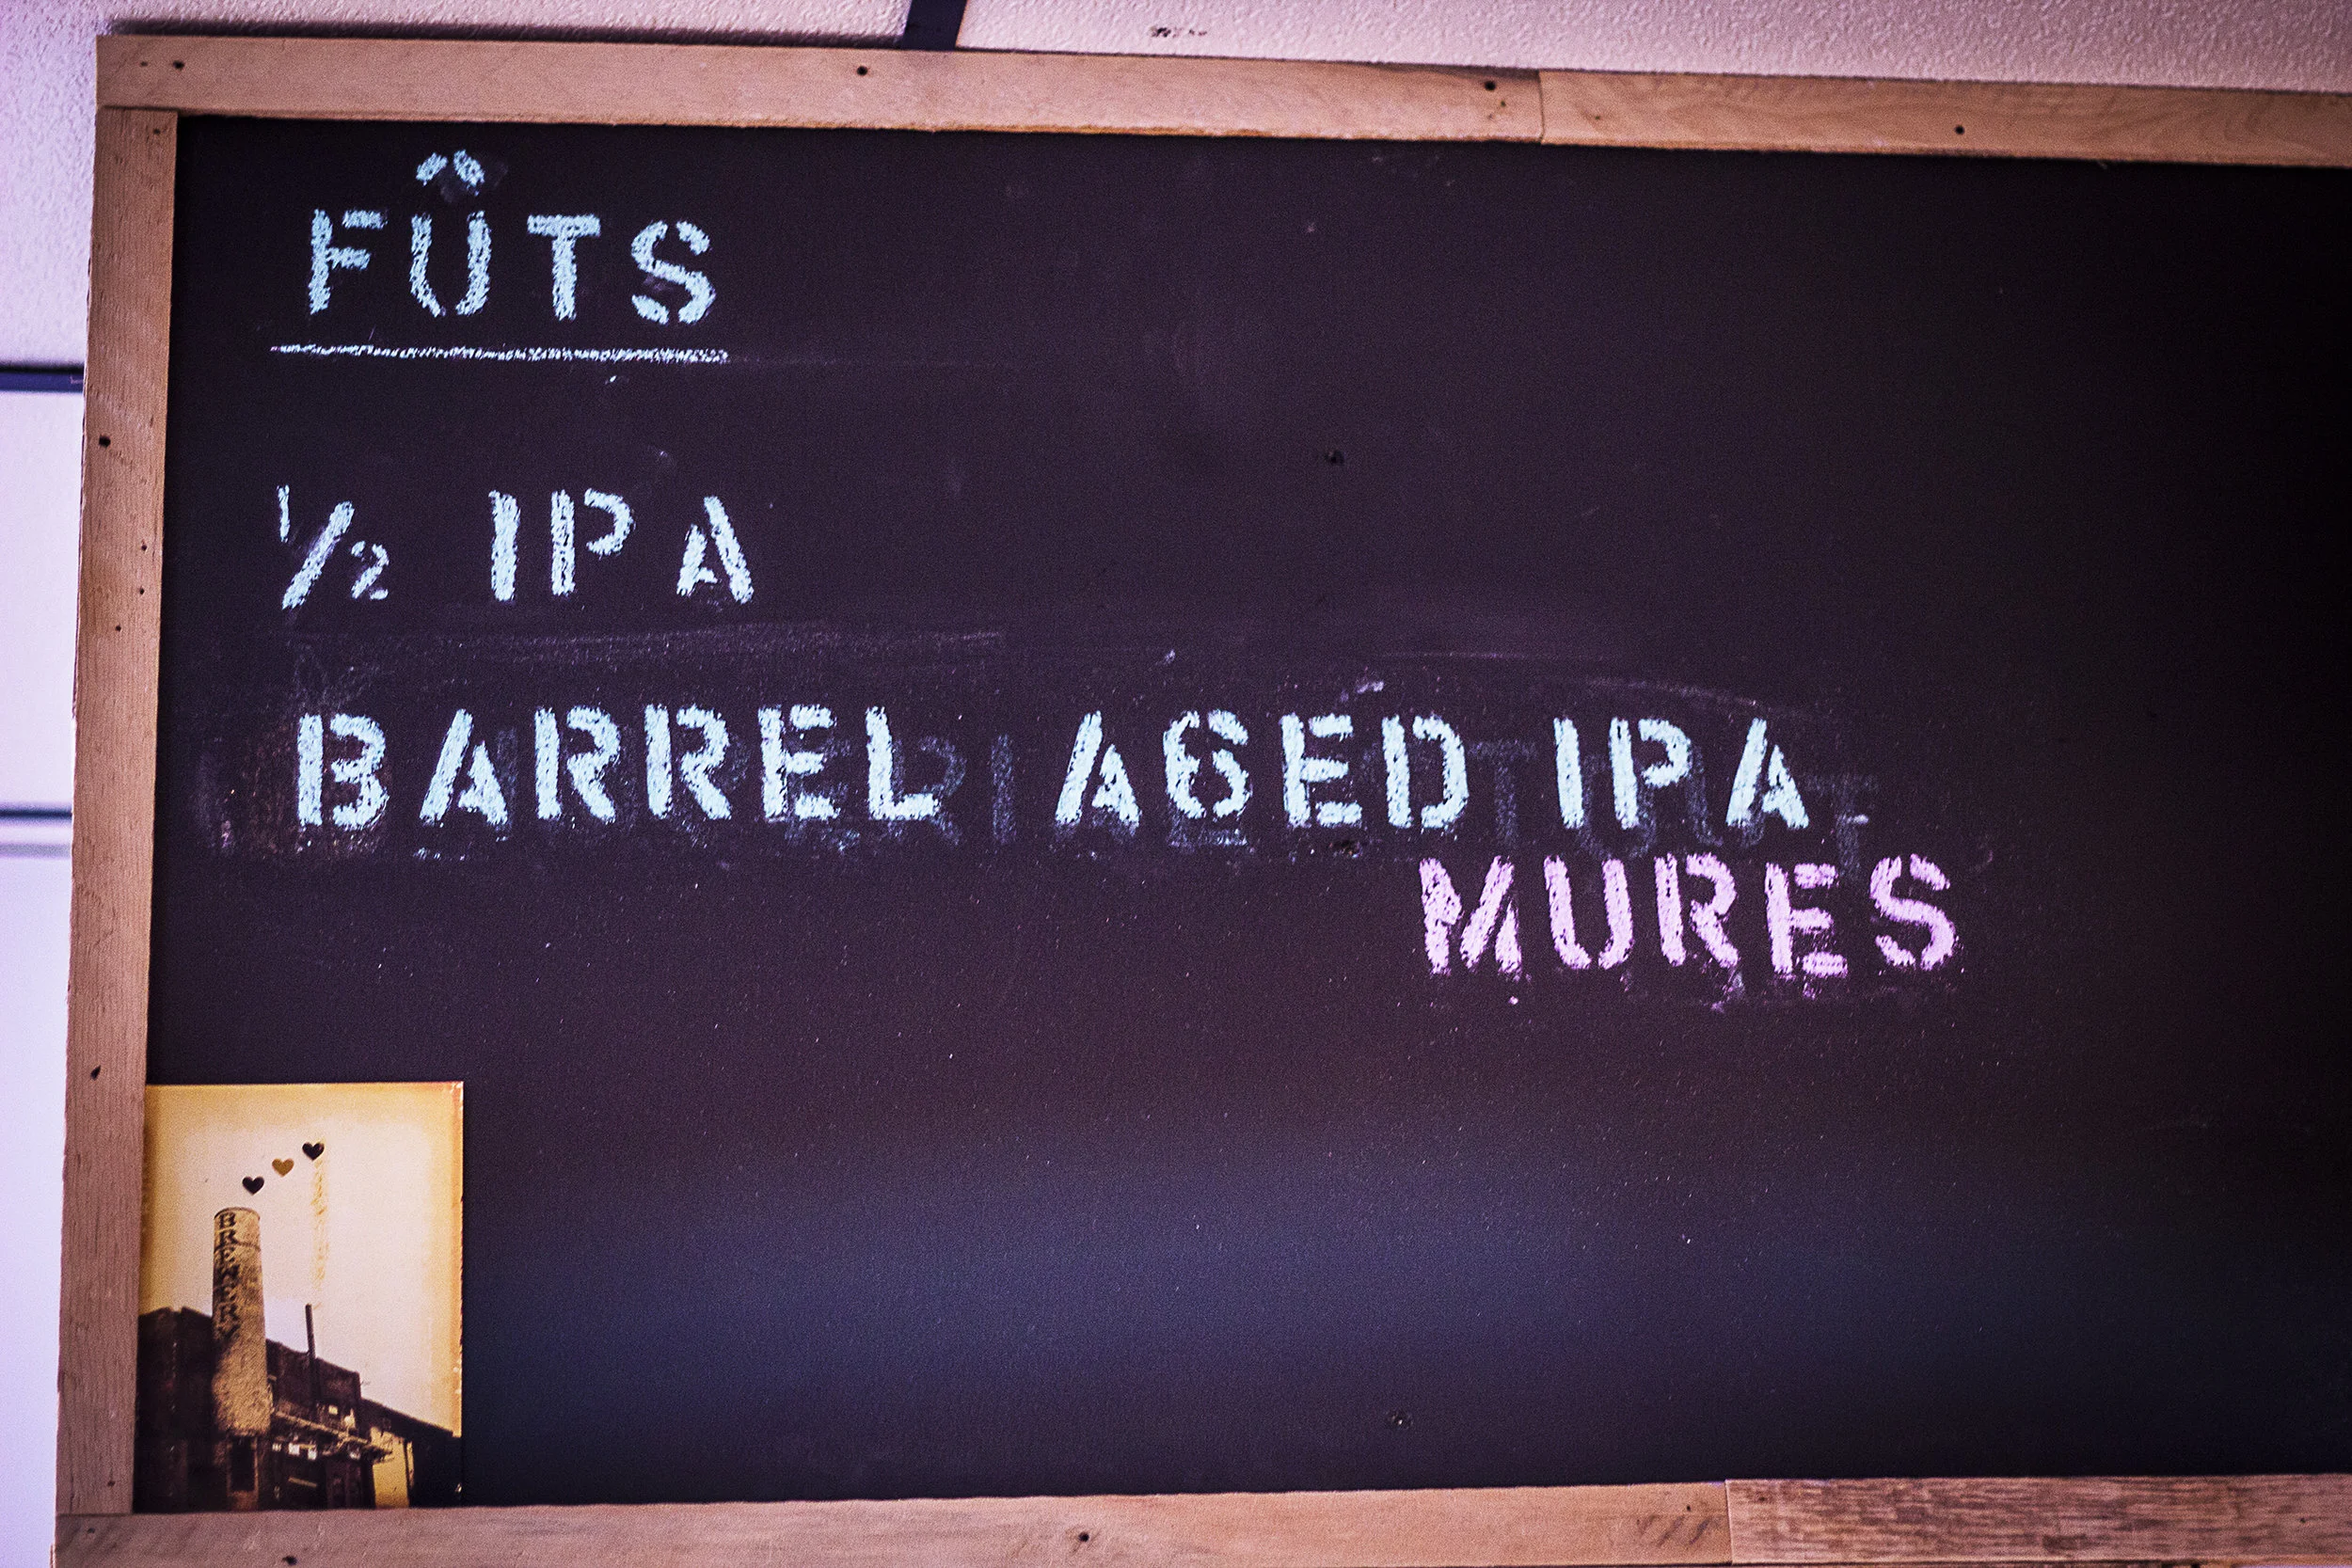 FÛTS
½ IPA
BARREL AGED IPA
MURES
BREWERY